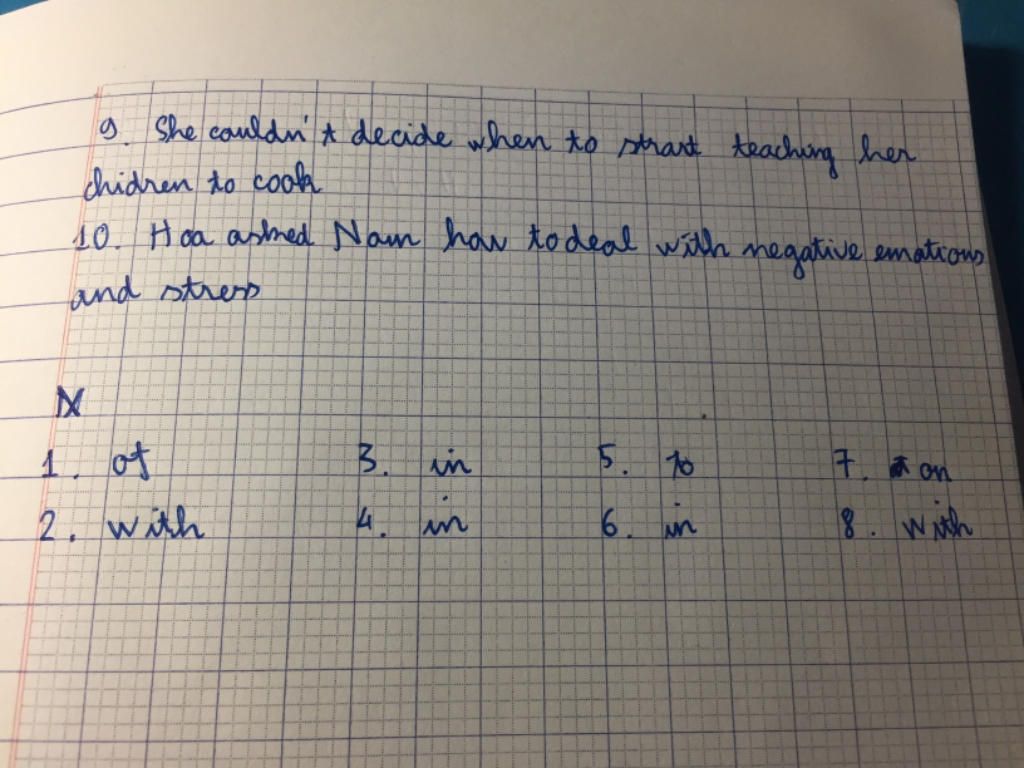 9. She couldn't decide when to start teaching her
chidren to cook
10. Hoa asked Nam how to deal with negative emotions
and stress
IV
1. of 3. in 5. to 7. on
2. with 4. in 6. in 8. with